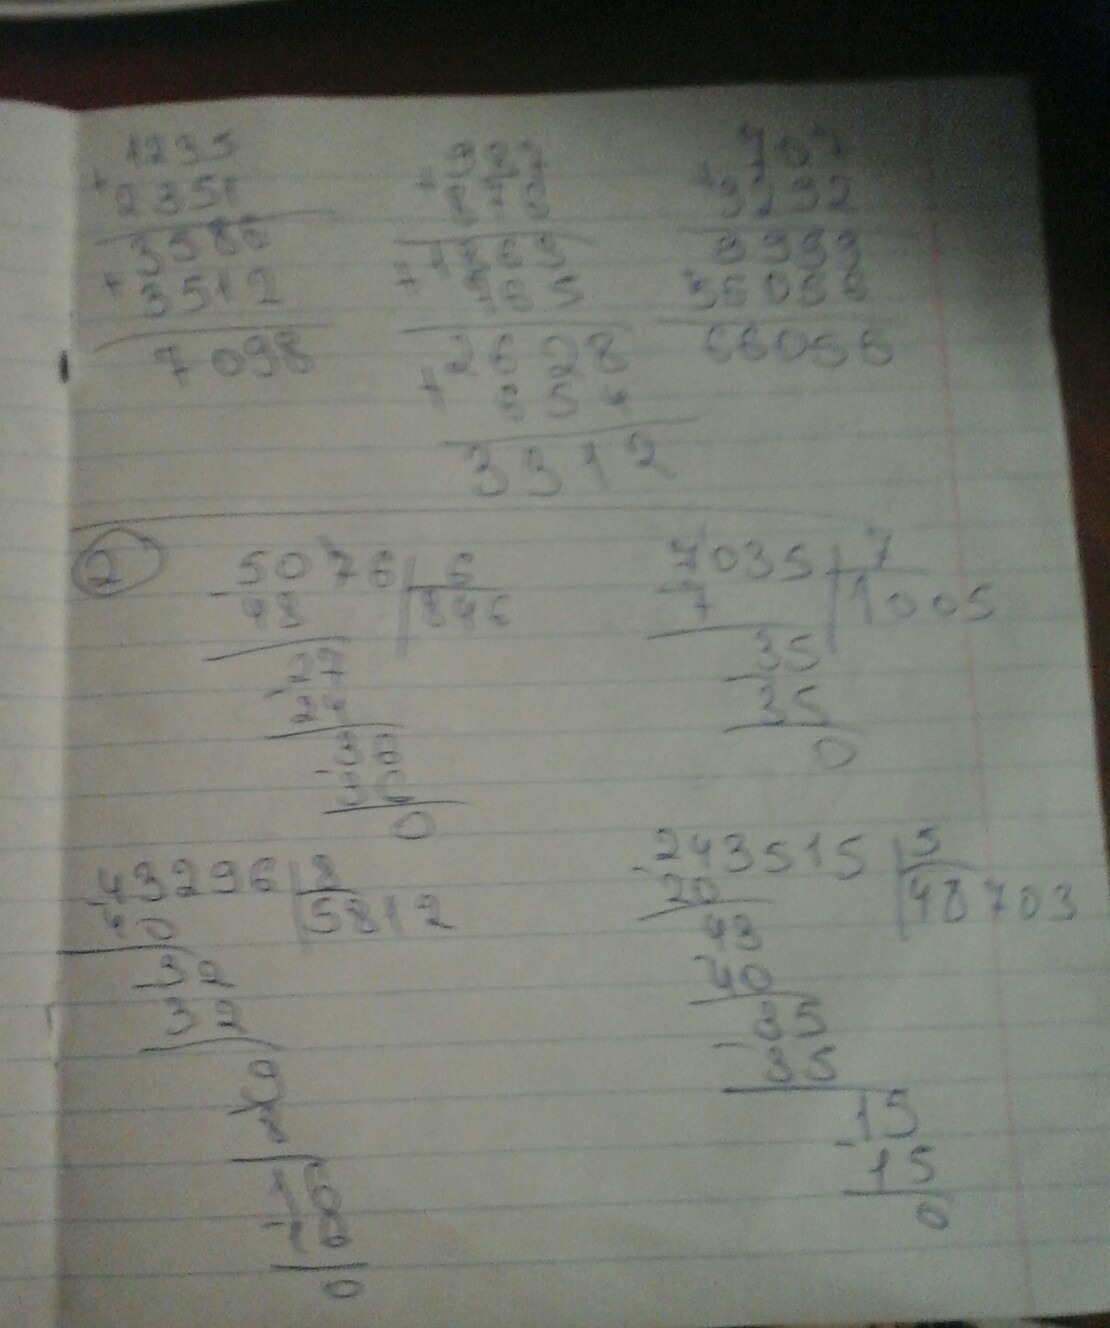 1235
+
2351
3586
+
3512
7098
+
+
765
2628
+
3312
707
+
3292
56056
2
5076 6
48 846
27
24
36
36
0
7035 7
7 1005
35
35
0
43296 8
40 5812
32
32
9
16
16
0
243515 5
20 48703
43
40
35
35
15
15
0